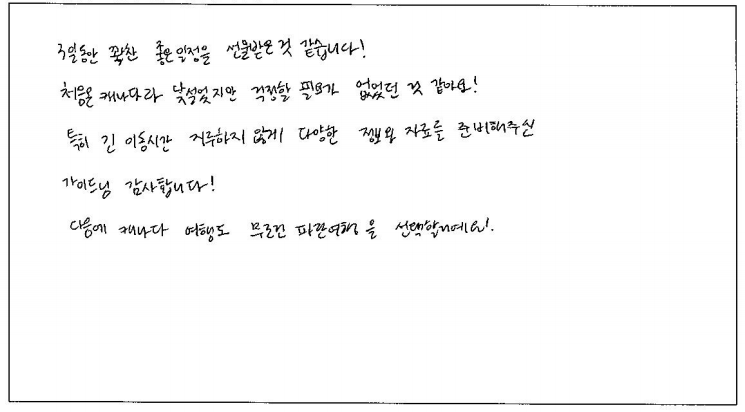 3일동안 꽉찬 좋은일정을 선물받은것 같습니다!
처음온 캐나다라 낯설었지만 걱정할 필요가 없었던 것 같아요!
특히 긴 이동시간 지루하지 않게 다양한 정보와 자료를 준비해주신
가이드님 감사합니다!
다음에 캐나다 여행도 무조건 파란여행을 선택할거예요!